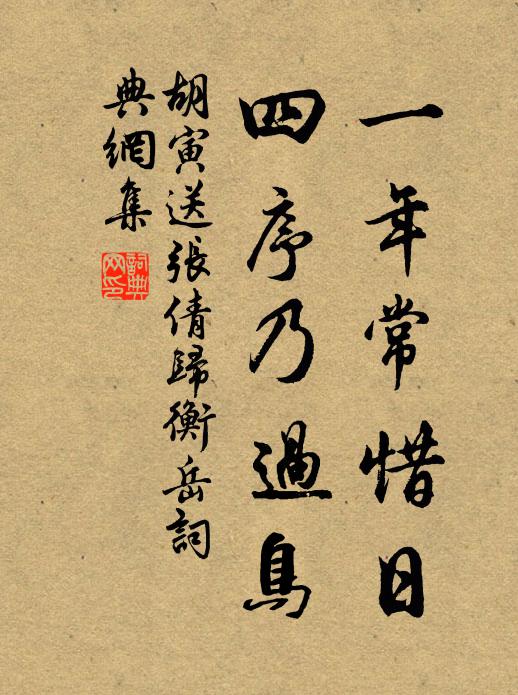 一年常惜日
四序乃過鳥
胡寅送張倩歸衡岳詞
典網集
詞典網印